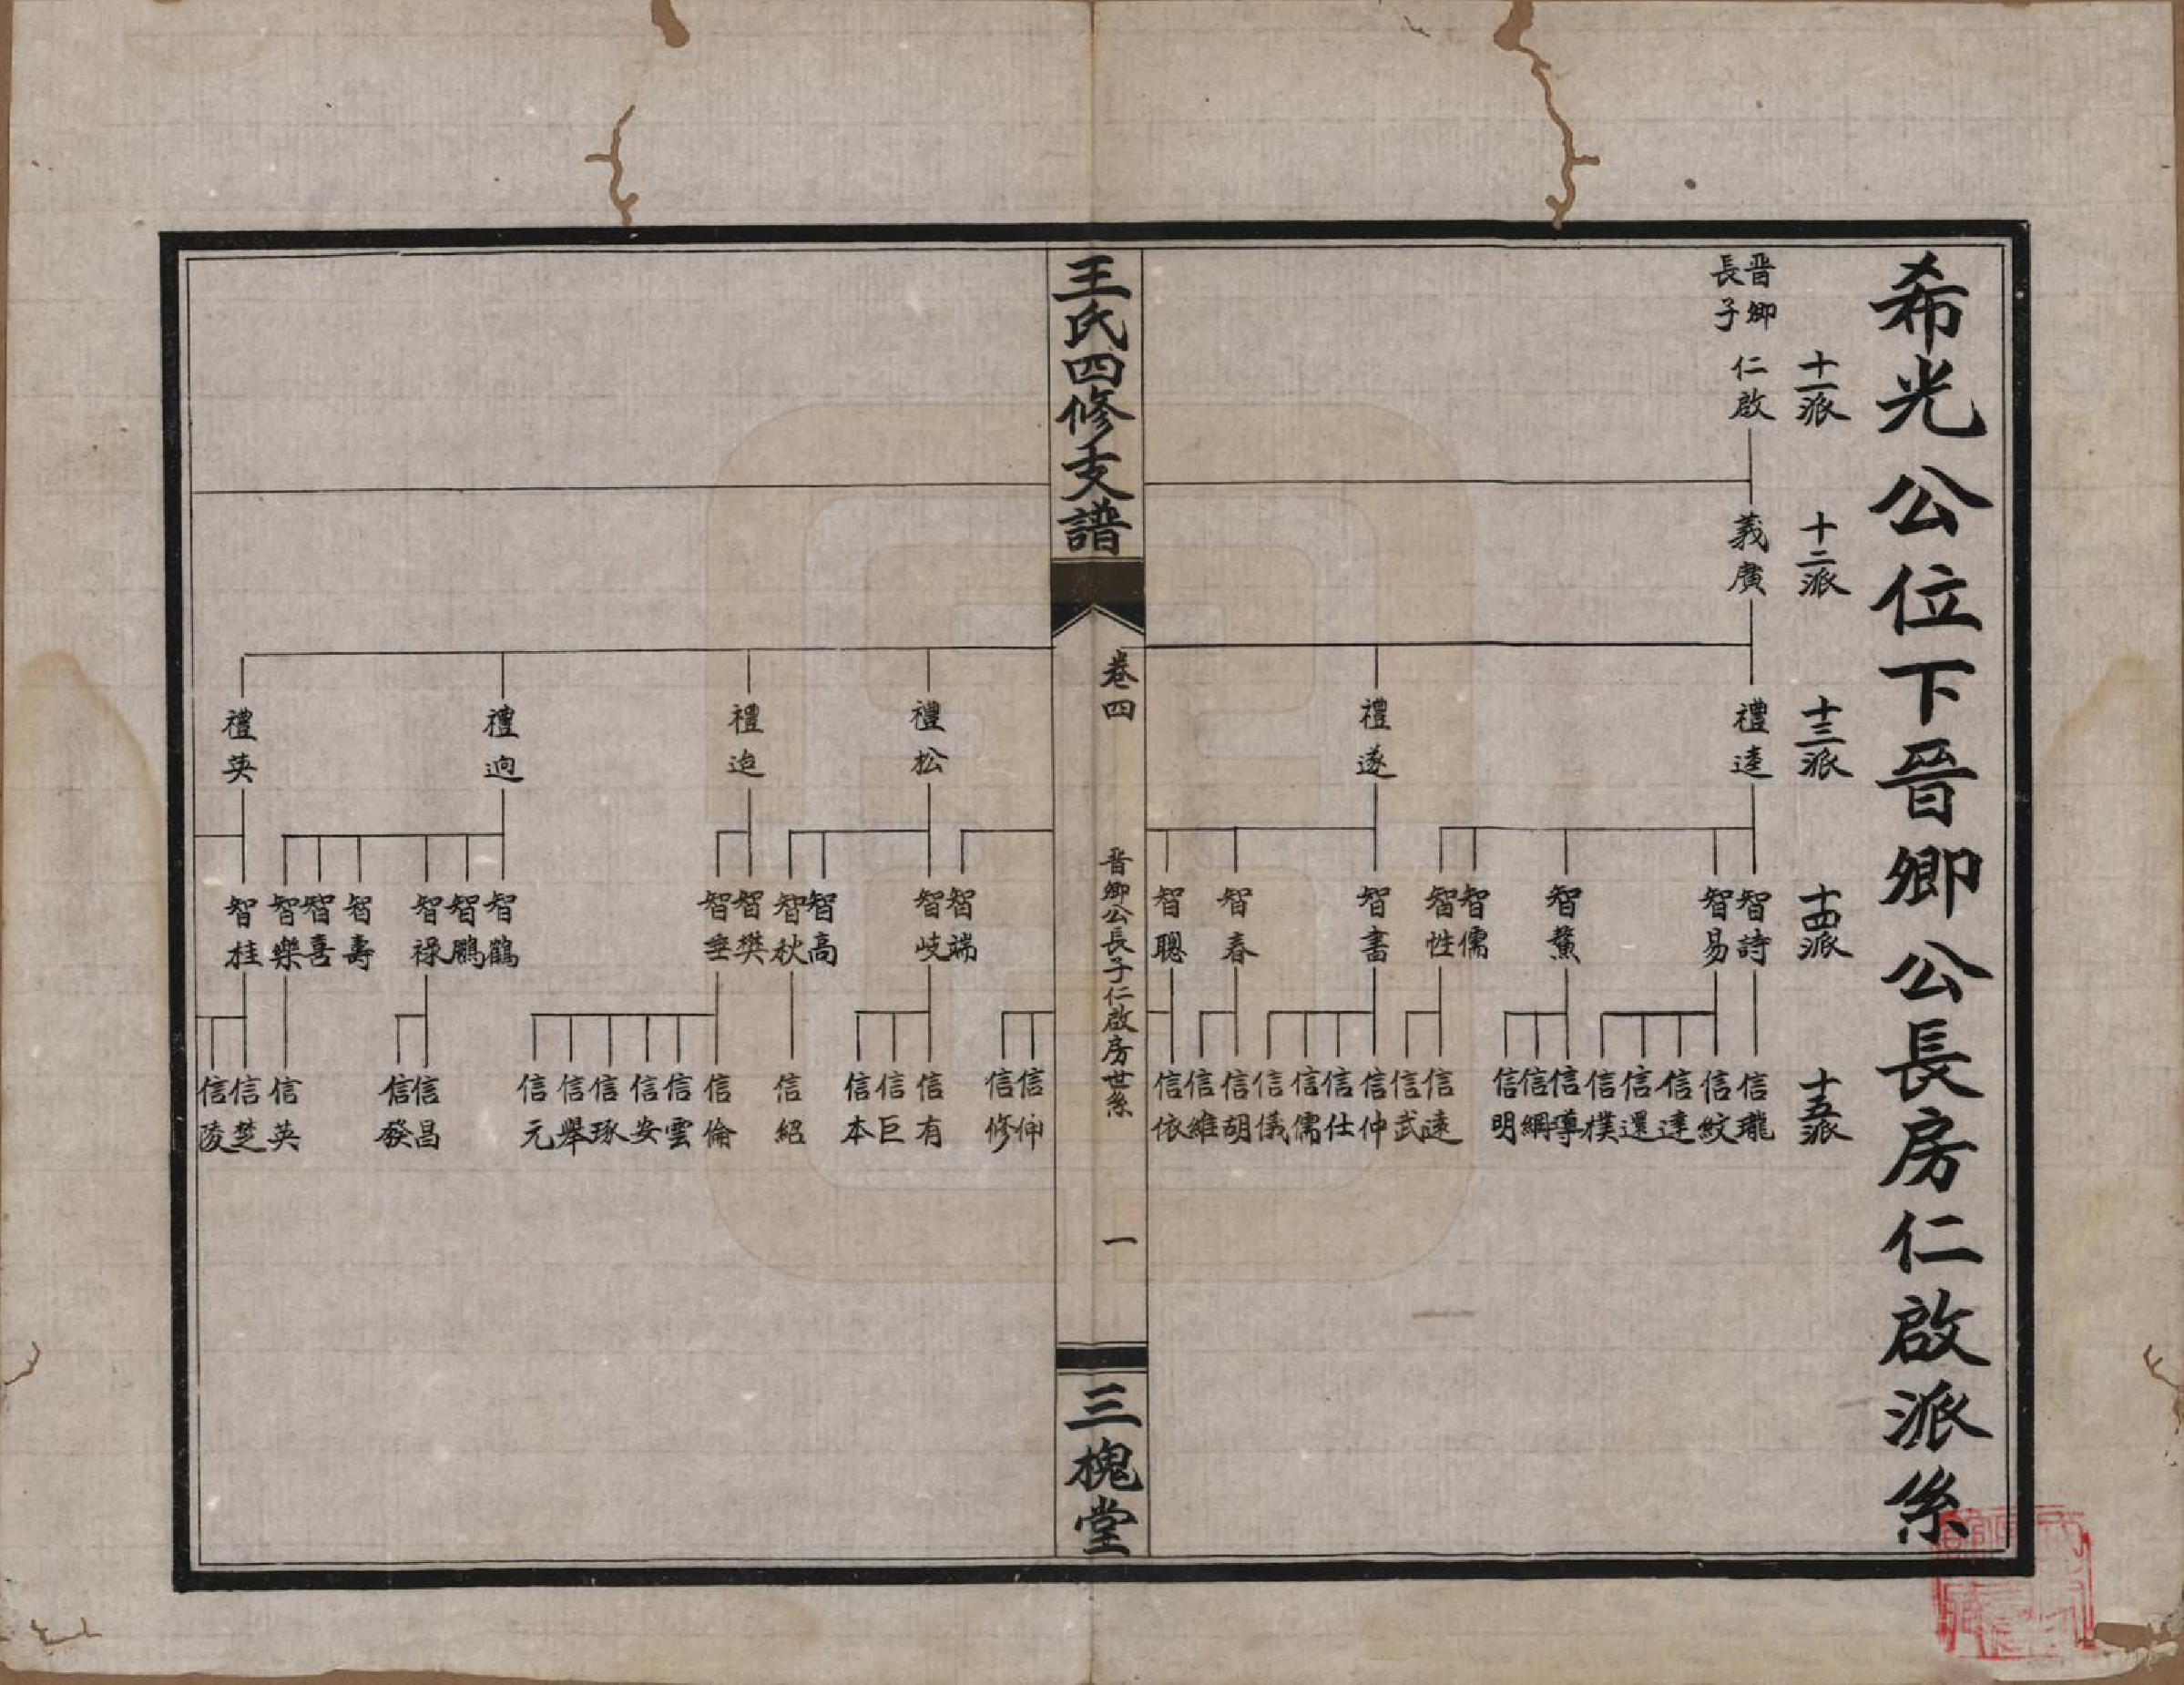 希光公位下晉卿公長房仁啟派系
十一派
十二派
十三派
十四派
十五派
晉卿
長子
仁啟
義廣
禮逵
禮遂
智詩
智易
智鰲
智儒
智性
智書
智春
智聰
信瓏
信紋
信達
信還
信樸
信導
信綱
信明
信遠
信武
信仲
信仕
信儒
信儀
信胡
信維
信依
王氏四修支譜
卷四
晉卿公長子仁啟房世系
一
三槐堂
禮松
禮迨
禮逈
禮英
智端
智岐
智高
智秋
智樊
智垂
智鶴
智鵬
智祿
智壽
智喜
智樂
智桂
信伸
信修
信有
信巨
信本
信紹
信倫
信雲
信安
信琢
信舉
信元
信昌
信發
信英
信楚
信陵